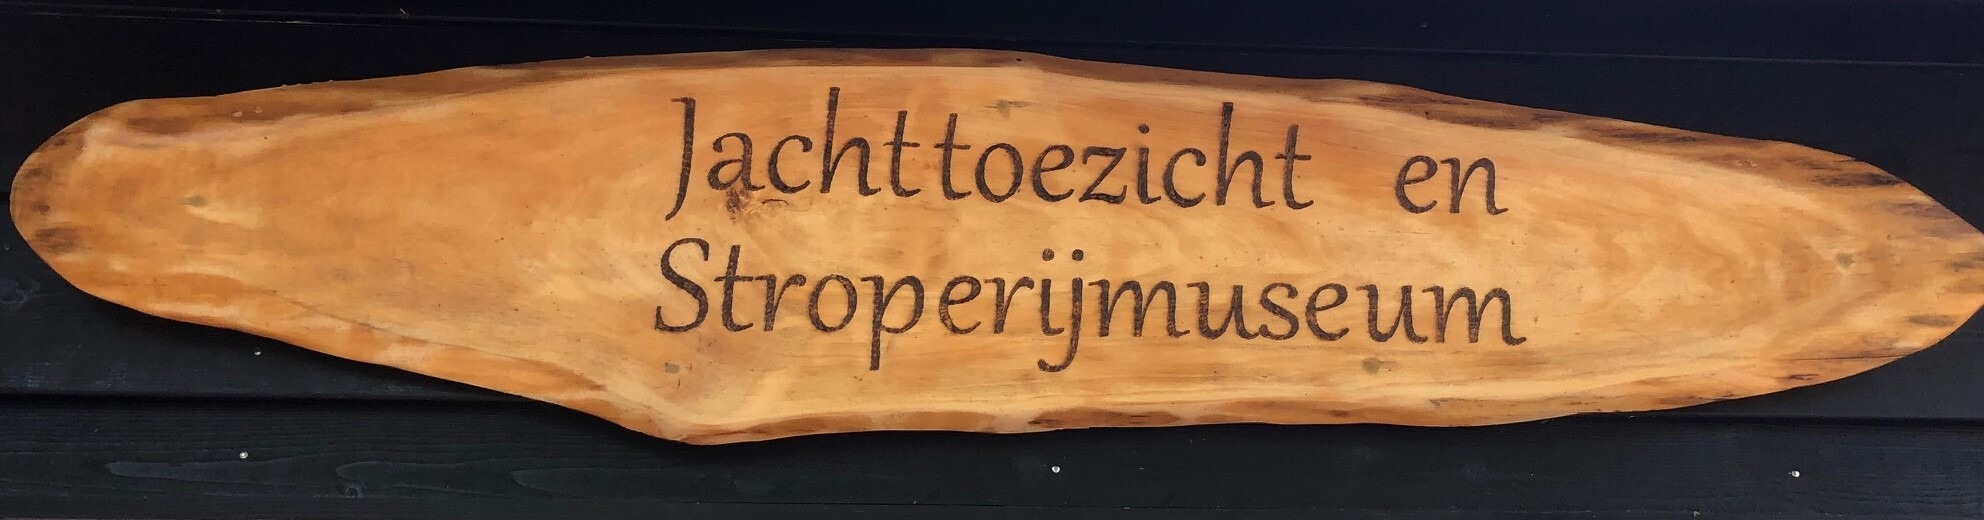 Jachttoezicht en
Stroperijmuseum